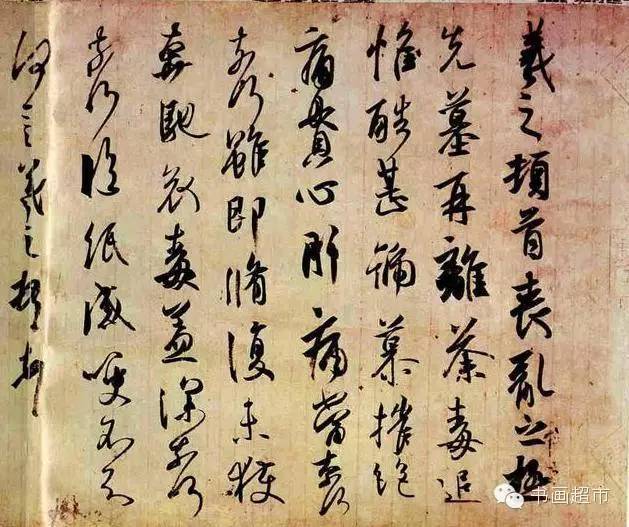 羲之頓首喪亂之極
先墓再離荼毒追
惟酷甚號慕摧絶
痛貫心肝痛當柰何
柰何雖即脩復未獲
奔馳哀毒益深柰何
柰何臨紙感哽不知
何言羲之頓首
书画超市